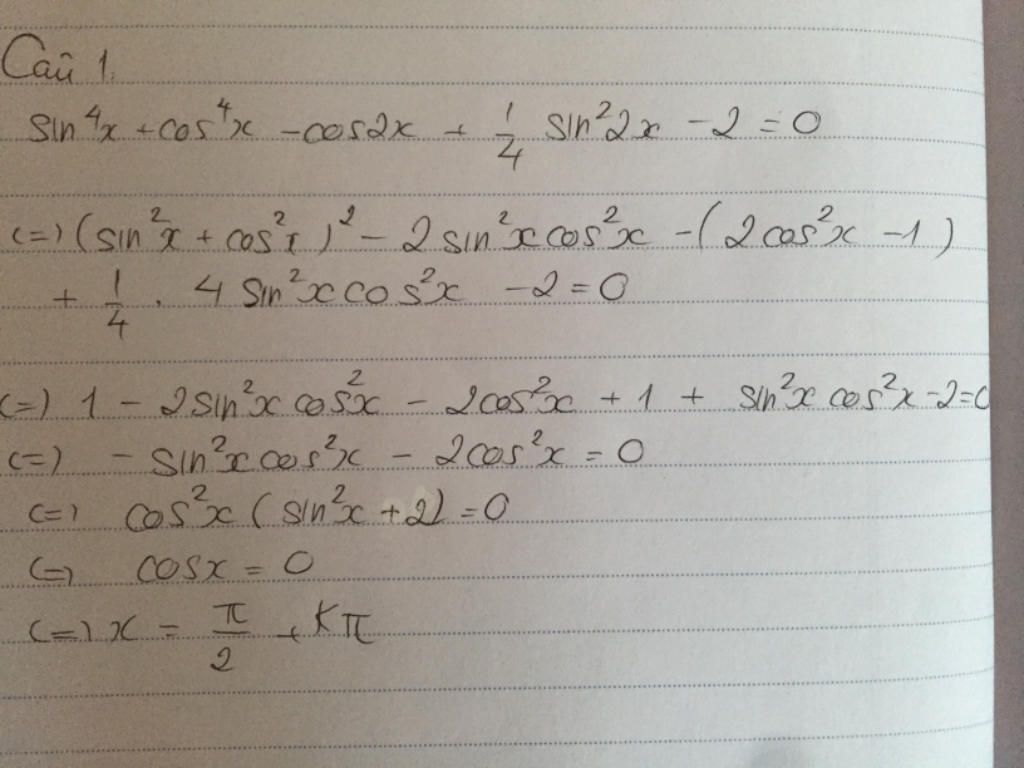 Câu 1.
sin⁴x + cos⁴x - cos2x + 1/4 sin²2x - 2 = 0
(=) (sin²x + cos²x)² - 2sin²xcos²x - (2cos²x - 1)
+ 1/4 . 4 sin²xcos²x - 2 = 0
(=) 1 - 2sin²xcos²x - 2cos²x + 1 + sin²xcos²x - 2 = 0
(=) - sin²xcos²x - 2cos²x = 0
(=) cos²x (sin²x + 2) = 0
(=) cosx = 0
(=) x = π/2 + kπ